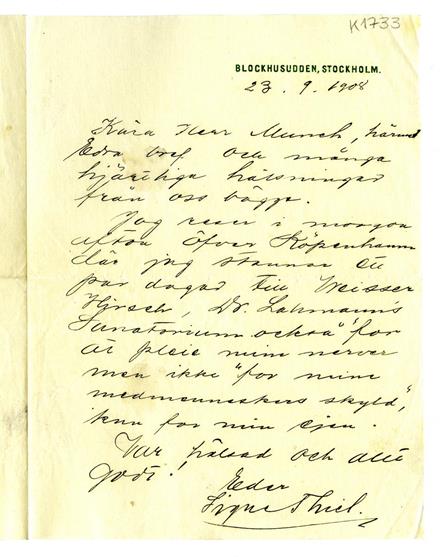 K1733
BLOCKHUSUDDEN, STOCKHOLM.
23. 9. 1908
Kära Herr Munch, härmed
Edra bref och många
hjärtliga hälsningar
från oss bägge.
Jag reser i morgon
afton öfver Köpenhamn
där jag stannar ett
par dagar till Weisser
Hirsch, Dr. Lahmann's
Sanatorium också "for
at pleie mine nerver
men ikke "for mine
medmenneskers skyld",
kun for min egen.
Var hälsad och allt
godt!
Eder
Signe Thiel.